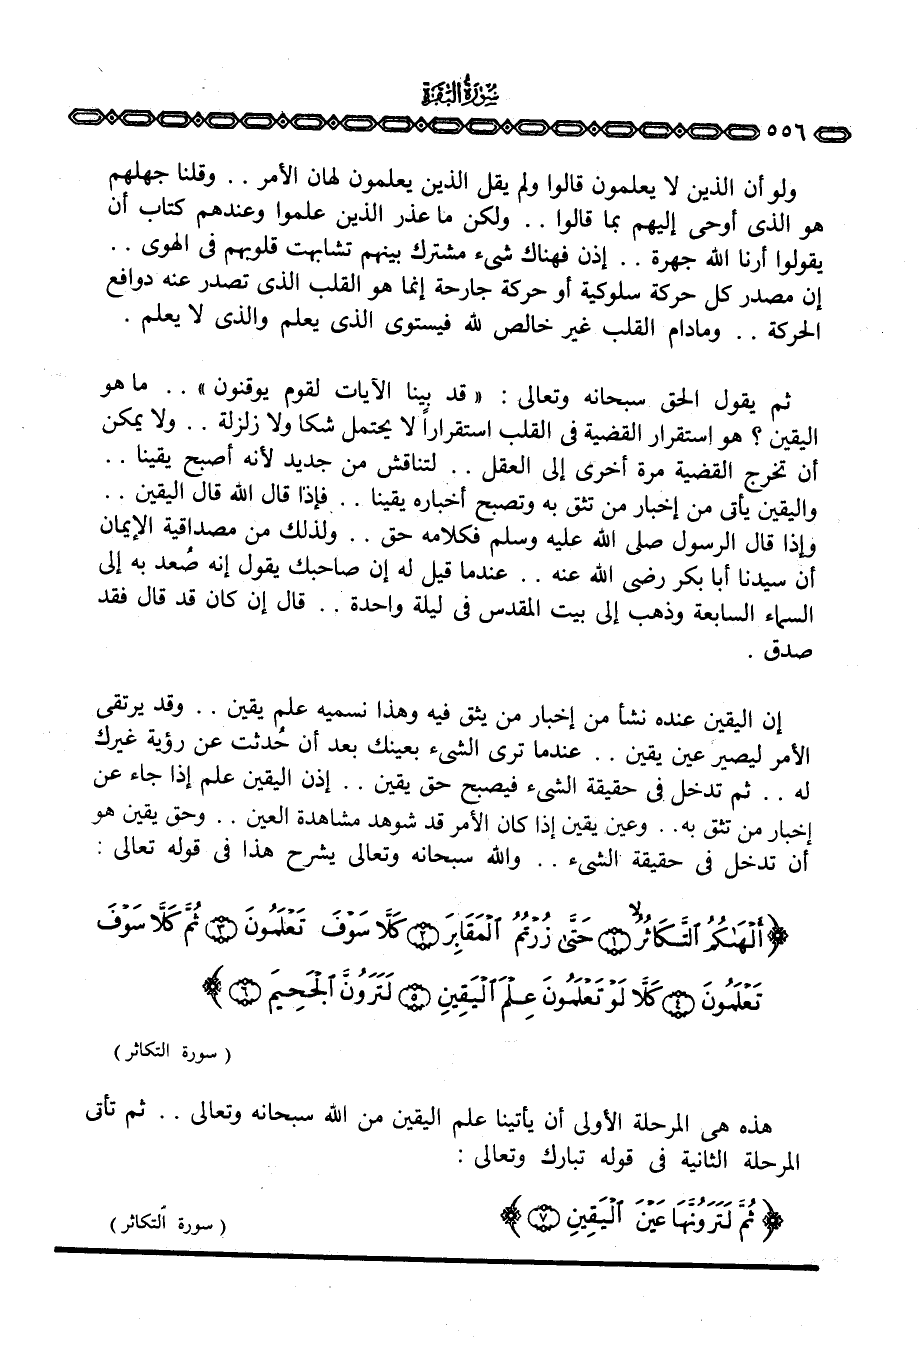 سورة البقرة
٥٥٦
ولو أن الذين لا يعلمون قالوا ولم يقل الذين يعلمون لهان الأمر . . وقلنا جهلهم
هو الذى أوحى إليهم بما قالوا . . ولكن ما عذر الذين علموا وعندهم كتاب أن
يقولوا أرنا الله جهرة . . إذن فهناك شىء مشترك بينهم تشابهت قلوبهم فى الهوى . .
إن مصدر كل حركة سلوكية أو حركة جارحة إنما هو القلب الذى تصدر عنه دوافع
الحركة . . ومادام القلب غير خالص لله فيستوى الذى يعلم والذى لا يعلم .
ثم يقول الحق سبحانه وتعالى : « قد بينا الآيات لقوم يوقنون » . . ما هو
اليقين ؟ هو استقرار القضية فى القلب استقراراً لا يحتمل شكا ولا زلزلة . . ولا يمكن
أن تخرج القضية مرة أخرى إلى العقل . . لتناقش من جديد لأنه أصبح يقينا . .
واليقين يأتى من إخبار من تثق به وتصبح أخباره يقينا . . فإذا قال الله قال اليقين . .
وإذا قال الرسول صلى الله عليه وسلم فكلامه حق . . ولذلك من مصداقية الإيمان
أن سيدنا أبا بكر رضى الله عنه . . عندما قيل له إن صاحبك يقول إنه صُعد به إلى
السماء السابعة وذهب إلى بيت المقدس فى ليلة واحدة . . قال إن كان قد قال فقد
صدق .
إن اليقين عنده نشأ من إخبار من يثق فيه وهذا نسميه علم يقين . . وقد يرتقى
الأمر ليصير عين يقين . . عندما ترى الشىء بعينك بعد أن حُدثت عن رؤية غيرك
له . . ثم تدخل فى حقيقة الشىء فيصبح حق يقين . . إذن اليقين علم إذا جاء عن
إخبار من تثق به . . وعين يقين إذا كان الأمر قد شوهد مشاهدة العين . . وحق يقين هو
أن تدخل فى حقيقة الشىء . . والله سبحانه وتعالى يشرح هذا فى قوله تعالى :
﴿ أَلْهَىٰكُمُ ٱلتَّكَاثُرُ ۝١ حَتَّىٰ زُرْتُمُ ٱلْمَقَابِرَ ۝٢ كَلَّا سَوْفَ تَعْلَمُونَ ۝٣ ثُمَّ كَلَّا سَوْفَ
تَعْلَمُونَ ۝٤ كَلَّا لَوْ تَعْلَمُونَ عِلْمَ ٱلْيَقِينِ ۝٥ لَتَرَوُنَّ ٱلْجَحِيمَ ۝٦ ﴾
( سورة التكاثر )
هذه هى المرحلة الأولى أن يأتينا علم اليقين من الله سبحانه وتعالى . . ثم تأتى
المرحلة الثانية فى قوله تبارك وتعالى :
﴿ ثُمَّ لَتَرَوُنَّهَا عَيْنَ ٱلْيَقِينِ ۝٧ ﴾
( سورة التكاثر )